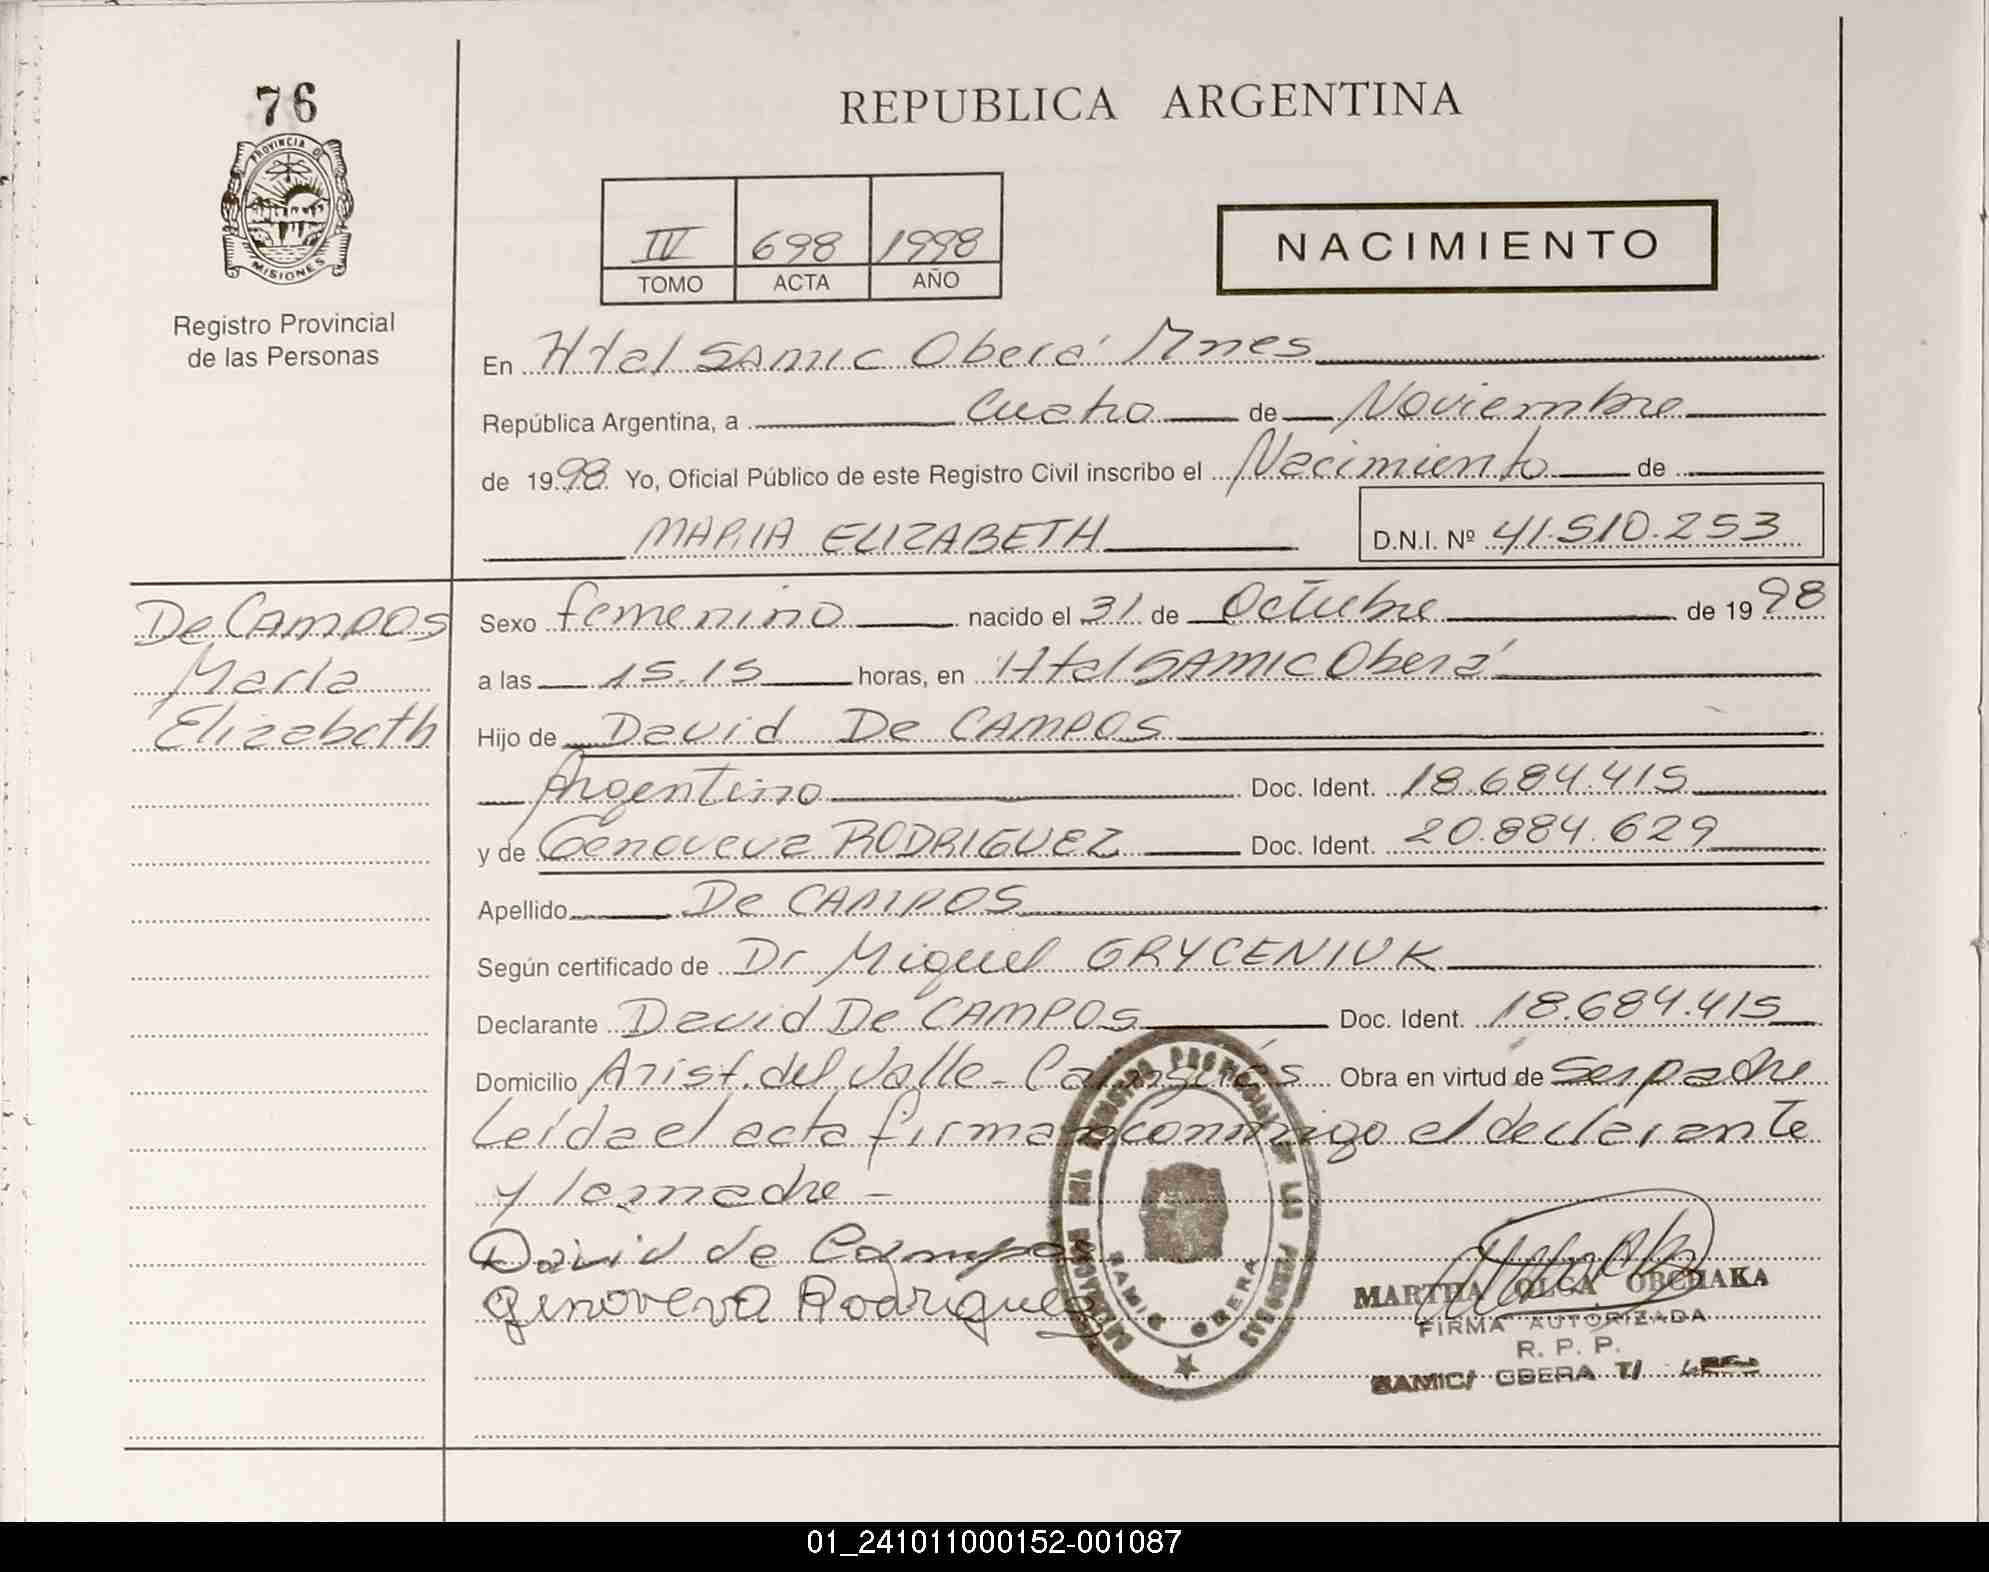 76
REPUBLICA ARGENTINA
PROVINCIA D
MISIONES
Registro Provincial
de las Personas
IV 698 1998
TOMO ACTA AÑO
NACIMIENTO
En Htal SAMIC Oberá Mnes
República Argentina, a Cuatro de Noviembre
de 1998 Yo, Oficial Público de este Registro Civil inscribo el Nacimiento de
MARIA ELIZABETH D.N.I. Nº 41.510.253
De CAMPOS
Maria
Elizabeth
Sexo femenino nacido el 31 de Octubre de 1998
a las 15.15 horas, en Htal SAMIC Oberá
Hijo de David De CAMPOS
Argentino Doc. Ident. 18.684.415
y de Genoveva RODRIGUEZ Doc. Ident. 20.884.629
Apellido De CAMPOS
Según certificado de Dr Miguel GRYCENIUK
Declarante David De CAMPOS Doc. Ident. 18.684.415
Domicilio Arist. del Valle - Obra en virtud de Ser padre
Leida el acta firman conmigo el declarante
y la madre -
David de Campos
Genoveva Rodriguez
REGISTRO PROVINCIAL DE LAS PERSONAS
SAMIC OBERA
MARTHA OLGA ORCHAKA
FIRMA AUTORIZADA
R. P. P.
SAMIC/ OBERA T/
01_241011000152-001087